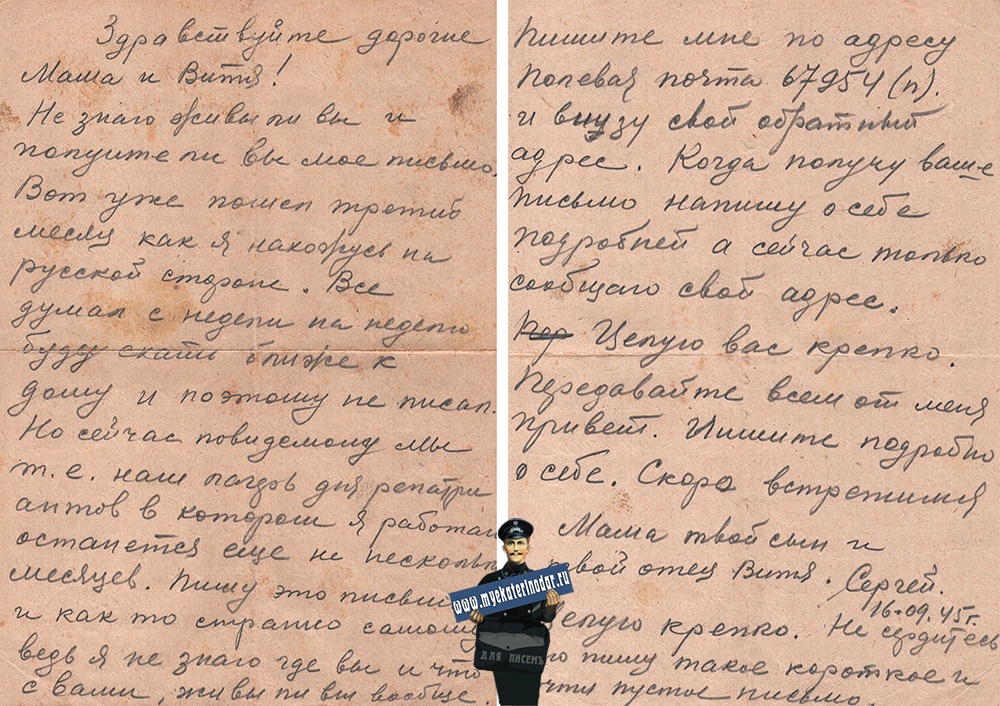 Здравствуйте дорогие
Маша и Витя!
Не знаю живы ли вы и
получите ли вы мое письмо.
Вот уже пошел третий
месяц как я нахожусь на
русской стороне. Все
думал с недели на неделю
буду ехать ближе к
дому и поэтому не писал.
Но сейчас повидемому мы
т.е. наш лагерь для репатри
антов в котором я работаю
останется еще не несколько
месяцев. Пишу это письмо
и как то странно самому
ведь я не знаю где вы и что
с вами, живы ли вы вообще.
Пишите мне по адресу
Полевая почта 67954 (п).
и внизу свой обратный
адрес. Когда получу ваше
письмо напишу о себе
подробней а сейчас только
сообщаю свой адрес.
Целую вас крепко.
Передавайте всем от меня
привет. Пишите подробно
о себе. Скоро встретимся
Маша твой сын и
твой отец Витя. Сергей.
16.09.45г.
Целую крепко. Не сердитесь
что пишу такое короткое и
почти пустое письмо.
www.myekaterinodar.ru
ДЛЯ ПИСЕМЪ